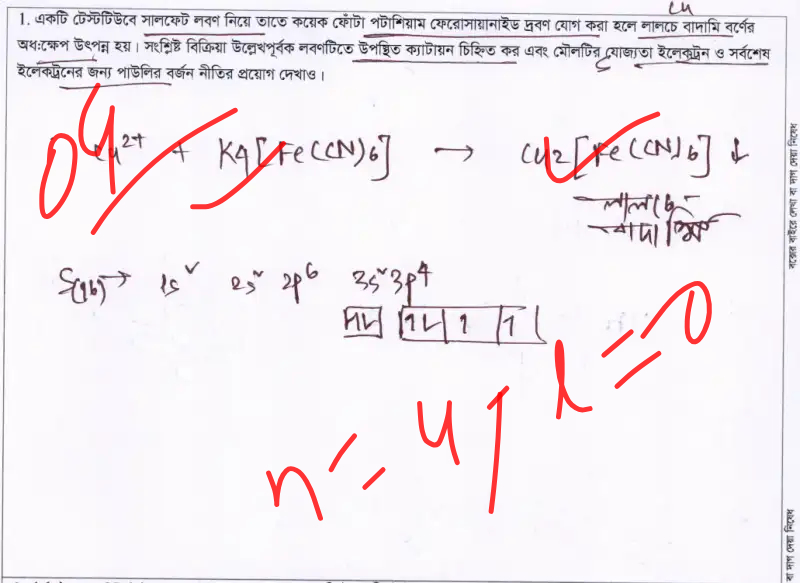 Cu
1. একটি টেস্টটিউবে সালফেট লবণ নিয়ে তাতে কয়েক ফোঁটা পটাশিয়াম ফেরোসায়ানাইড দ্রবণ যোগ করা হলে লালচে বাদামি বর্ণের
অধঃক্ষেপ উৎপন্ন হয়। সংশ্লিষ্ট বিক্রিয়া উল্লেখপূর্বক লবণটিতে উপস্থিত ক্যাটায়ন চিহ্নিত কর এবং মৌলটির যোজ্যতা ইলেকট্রন ও সর্বশেষ
ইলেকট্রনের জন্য পাউলির বর্জন নীতির প্রয়োগ দেখাও।
Cu²⁺ + K4[Fe(CN)6] → Cu2[Fe(CN)6] ↓
লালচে
বাদামি
S(16) → 1s² 2s² 2p⁶ 3s² 3p⁴
1L 1L 1 1
n = 4, l = 0
বক্সের বাইরে লেখা বা দাগ দেয়া নিষেধ
বা দাগ দেয়া নিষেধ